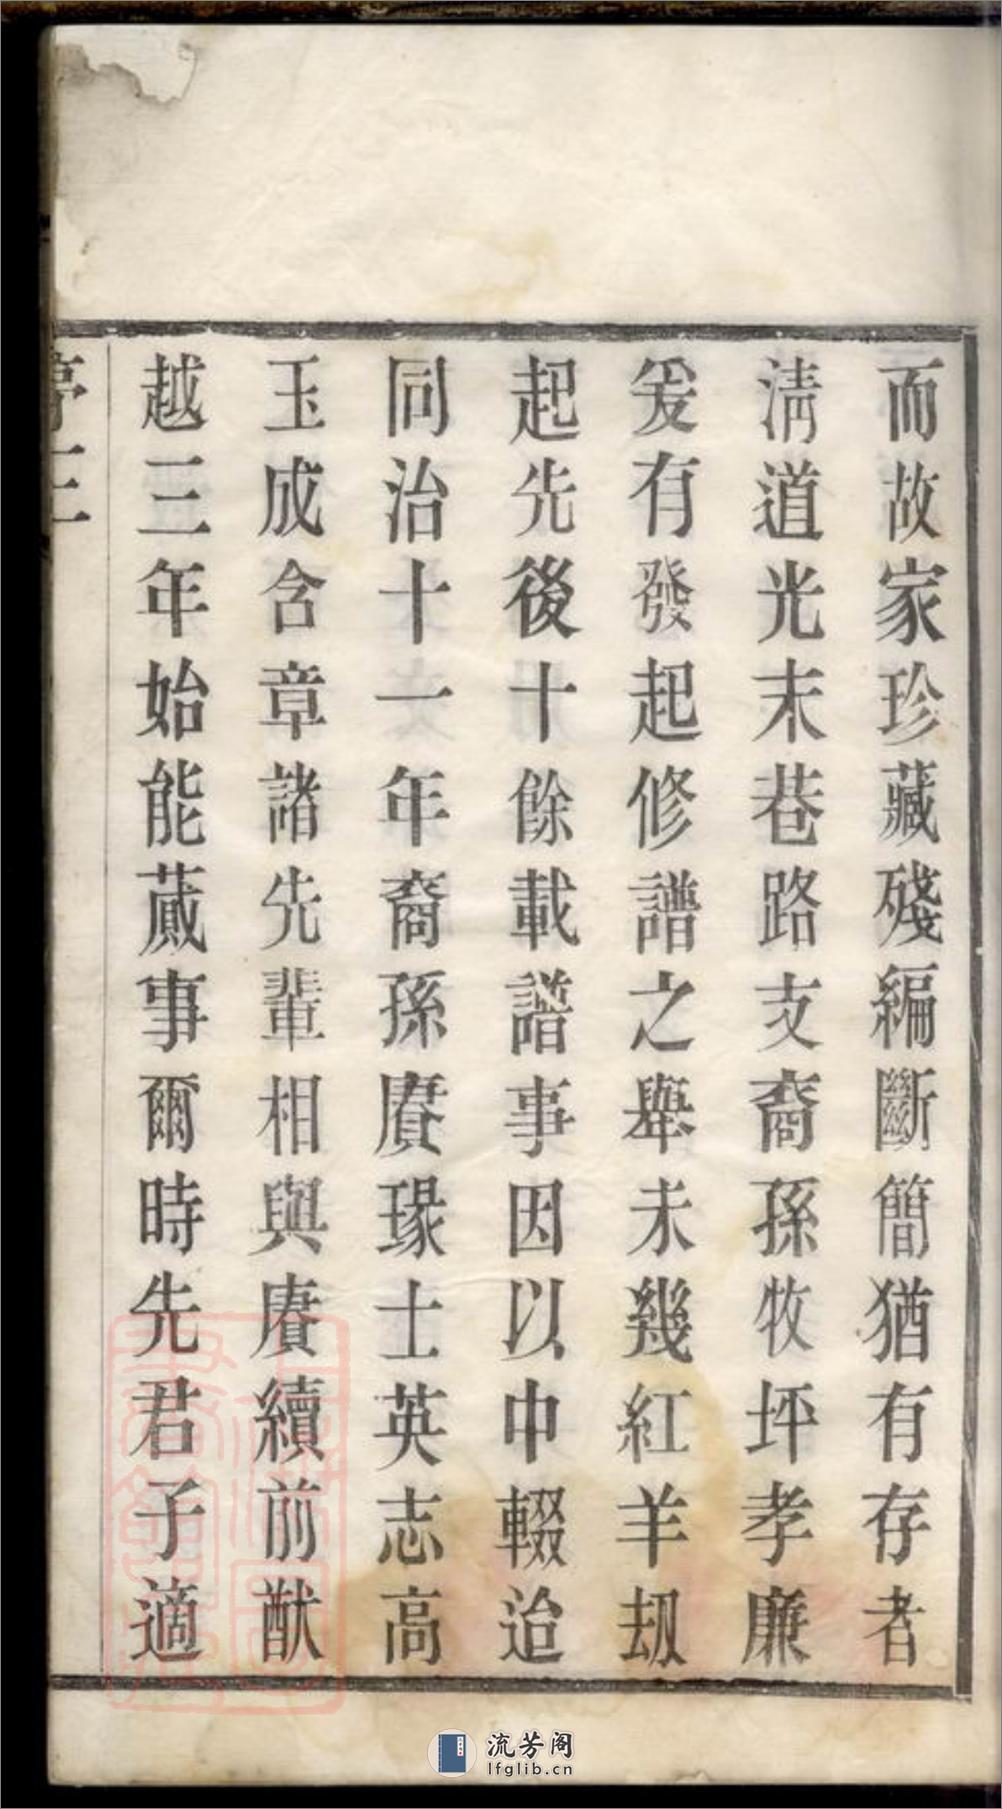 而故家珍藏殘編斷簡猶有存者
淸道光末巷路支裔孫牧坪孝廉
爰有發起修譜之舉未幾紅羊刼
起先後十餘載譜事因以中輟迨
同治十一年裔孫賡瑑士英志高
玉成含章諸先輩相與賡續前猷
越三年始能蕆事爾時先君子適
序三
流芳阁
lfglib.cn